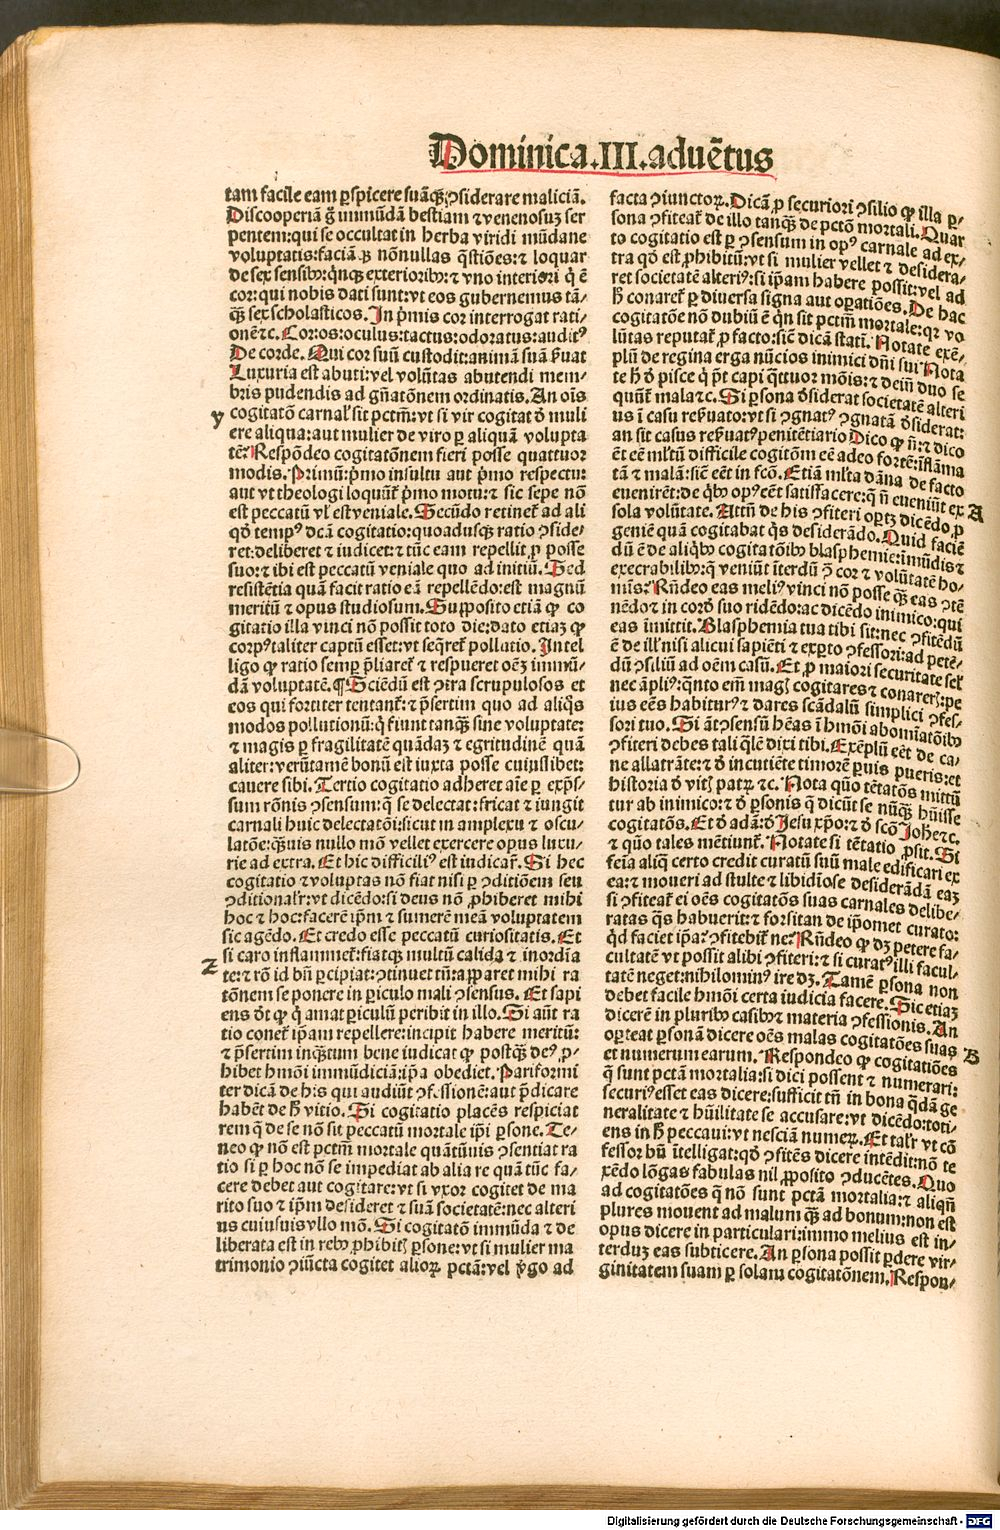 Dominica.III.aduẽtus
tam facile eam ꝑspicere suãqꝫ ꝯsiderare maliciã.
Discooperiã g̃ immũdã bestiam ⁊ venenosuꝫ ser
pentem: qui se occultat in herba viridi mũdane
voluptatis: faciã nonnullas q̃stiões: ⁊ loquar
de sex sensibꝰ: qͥnqꝫ exterioribꝰ: ⁊ vno interiori qͥ ẽ
cor: qui nobis dati sunt: vt eos gubernemus tã/
qꝫ sex scholasticos. In pͥmis cor interrogat rati/
onẽ ⁊c. Cor: os: oculus: tactus: odoratus: auditꝰ
De corde. Qui cor suũ custodit: animã suã ẜuat
Luxuria est abuti: vel volũtas abutendi mem/
bris pudendis ad gñatõnem ordinatis. An oĩs
y
cogitatõ carnał sit pctm̃: vt si vir cogitat ð muli
ere aliqua: aut mulier de viro ꝑ aliquã volupta
tẽ? Respõdeo cogitatõnem fieri posse quattuor
modis. Primũ: pͥmo insultu aut pͥmo respectu:
aut vt theologi loquũt᷑ pͥmo motu: ⁊ sic sepe nõ
est peccatũ vł est veniale. Secũdo retinet᷑ ad ali
qð tempꝰ dcã cogitatio: quoadusqꝫ ratio ꝯside/
ret: deliberet ⁊ iudicet: ⁊ tũc eam repellit ꝓ posse
suo: ⁊ ibi est peccatũ veniale quo ad initiũ. Sed
resistẽtia quã facit ratio eã repellẽdo: est magnũ
meritũ ⁊ opus studiosum. Supposito etiã ꝙ co
gitatio illa vinci nõ possit toto die: dato etiaꝫ ꝙ
corpꝰ taliter captũ esset: vt seq̃ret᷑ pollutio. Intel
ligo ꝙ ratio semꝑ p̃liaret᷑ ⁊ respueret oẽꝫ immũ/
dã voluptatẽ. ¶Sciẽdũ est ꝯtra scrupulosos et
eos qui fortiter tentant᷑: ⁊ p̃sertim quo ad aliqͦs
modos pollutionũ: q̃ fiunt tanqꝫ sine voluptate:
⁊ magis ꝑ fragilitatẽ quãdaꝫ ⁊ egritudinẽ quã
aliter: verũtamẽ bonũ est iuxta posse cuiuslibet:
cauere sibi. Tertio cogitatio adheret aĩe ꝑ exp̃s/
sum rõnis ꝯsensum: q̃ se delectat: fricat ⁊ iungit
carnali huic delectatõi: sicut in amplexu ⁊ oscu/
latõe: qͣuis nullo mõ vellet exercere opus luxu/
rie ad extra. Et hic difficiliꝰ est iudicar̃. Si hec
cogitatio ⁊ voluptas nõ fiat nisi ꝑ ꝯditiõem seu
ꝯditionalr̃: vt dicẽdo: si deus nõ ꝓhiberet mihi
hoc ⁊ hoc: facerẽ ip̃m ⁊ sumerẽ meã voluptatem
sic agẽdo. Et credo esse peccatũ curiositatis. Et
si caro inflammet᷑: fiatqꝫ multũ calida ⁊ inordĩa
z
te: ⁊ rõ id bñ ꝑcipiat: ꝯtinuet tñ: apparet mihi ra
tõnem se ponere in ꝑiculo mali ꝯsensus. Et sapi
ens ðt ꝙ qͥ amat ꝑiculũ peribit in illo. Si aũt ra
tio conet᷑ ip̃am repellere: incipit habere meritũ:
⁊ p̃sertim inqͣtum bene iudicat ꝙ postqꝫ deꝰ ꝓ/
hibet hmõi immũdiciã: ip̃a obediet. Pariformi
ter dicã de his qui audiũt ꝯfessionẽ: aut p̃dicare
habẽt de h̃ vitio. Si cogitatio placẽs respiciat
rem q̃ de se nõ sit peccatũ mortale ip̃i ꝑsone. Te/
neo ꝙ nõ est pctm̃ mortale quãtũuis ꝯsentiat ra
tio si ꝑ hoc nõ se impediat ab alia re quã tũc fa/
cere debet aut cogitare: vt si vxor cogitet de ma
rito suo ⁊ ip̃m desideret ⁊ suã societatẽ: nec alteri
us cuiusuis vllo mõ. Si cogitatõ immũda ⁊ de
liberata est in rebꝰ ꝓhibitꝭ ꝑsone: vt si mulier ma
trimonio ꝯiũcta cogitet alioꝝ pctã: vel v̓go ad
facta ꝯiunctoꝝ. Dicã ꝓ securiori ꝯsilio ꝙ illa ꝑ/
sona ꝯfiteat᷑ de illo tanqꝫ de pctõ mortali. Quar
to cogitatio est ꝑ ꝯsensum in opꝰ carnale ad ex/
tra qð est ꝓhibitũ: vt si mulier vellet ⁊ desidera/
ret societatẽ alteriꝰ: si ip̃am habere possit: vel ad
h̃ conaret᷑ ꝑ diuersa signa aut oꝑatiões. De hac
cogitatõe nõ dubiũ ẽ qͥn sit pctm̃ mortale: qꝛ vo
lũtas reputat᷑ ꝓ facto: sic̃ dicã statĩ. Notate exẽ/
plũ de regina erga nũcios inimici dñi sui Nota
te h̃ ð pisce qͥ p̃t capi qͣttuor mõis: ⁊ deiñ duo se
quũt᷑ mala ⁊c. Si ꝑsona ðsiderat societatẽ alteri
us ĩ casu reẜuato: vt si ꝯgnatꝰ ꝯgnatã ðsiderat:
an sit casus reẜuatꝰ penitẽtiario Dico ꝙ ñ: ⁊ dico
ẽt eẽ ml̃tũ difficile cogitõm eẽ adeo fortẽ: ĩflãma
tã ⁊ malã: sic̃ eẽt in fcõ. Etiã ml̃ta dãna de facto
euenirẽt: de qͥbꝰ opꝰ eẽt satiffacere: q̃ ñ eueniũt ex
A
sola volũtate. Attñ de his ꝯfiteri oꝑtꝫ dicẽdo ꝓ
geniẽ quã cogitabat qͥs desiderãdo. Quid faciẽ
dũ ẽ de aliqͥbꝰ cogitatõibꝰ blasphemie: imũdis ⁊
execrabilibꝰ: q̃ veniũt ĩterdũ ꝯ̃ cor ⁊ volũtatẽ ho/
mĩs? Rñdeo eas meliꝰ vinci nõ posse qꝫ eas ꝯtẽ
nẽdo ⁊ in corð suo ridẽdo: ac dicẽdo inimico: qui
eas imittit. Blasphemia tua tibi sit: nec ꝯfitẽdũ
ẽ de ill̃ nisi alicui sapiẽti ⁊ exꝑto ꝯfessori: ad petẽ/
dũ ꝯsiliũ ad oẽm casũ. Et ꝓ maiori securitate sel̃
nec ãpliꝰ: qͣnto em̃ magꝭ cogitares ⁊ conarerꝭ: pe
ius eẽs habiturꝰ ⁊ dares scãdalũ simplici ꝯfes/
sori tuo. Si ãt ꝯsensũ hẽas ĩ hmõi abomĩatõibꝰ
ꝯfiteri debes tali q̃lẽ dixi tibi. Exẽplũ eẽt de ca/
ne allatrãte: ⁊ ð incutiẽte timorẽ ꝑuis pueris: et
historia ð vitꝭ patꝝ ⁊c. Nota quõ tẽtatõs mittũ
tur ab inimico: ⁊ ð ꝑsonis q̃ dicũt se nũqꝫ hũisse
cogitatõs. Et ð adã: ð Jesu xp̃o: ⁊ ð scõ Johẽ ⁊c.
⁊ quõ tales mẽtiunt᷑. Notate si tẽtatio ꝓsit. Si
feĩa aliq̃ certo credit curatũ suũ male edificari ex
ea: ⁊ moueri ad stulte ⁊ libidĩose desiderãdã eaꝫ
si ꝯfiteat᷑ ei oẽs cogitatõs suas carnales delibe/
ratas qͣs habuerit: ⁊ forsitan de ip̃omet curato:
qͥd faciet ip̃a? ꝯfitebit᷑ ne? Rñdeo ꝙ dꝫ petere fa/
cultatẽ vt possit alibi ꝯfiteri: ⁊ si curatꝰ illi facul/
tatẽ neget: nihilominꝰ ire dꝫ. Tamẽ ꝑsona non
debet facile hmõi certa iudicia facere. Sic etiaꝫ
dicerẽ in pluribꝰ casibꝰ ⁊ materia ꝯfessionis. An
oꝑteat ꝑsonã dicere oẽs malas cogitatões suas
B
et numerum earum. Respondeo ꝙ cogitatiões
q̃ sunt pctã mortalia: si dici possent ⁊ numerari:
securiꝰ esset eas dicere: sufficit tñ in bona qͣdã ge
neralitate ⁊ hũilitate se accusare: vt dicẽdo: toti/
ens in h̃ peccaui: vt nesciã numeꝝ. Et talr̃ vt cõ
fessor bñ ĩtelligat: qð ꝯfitẽs dicere intẽdit: nõ te
xẽdo lõgas fabulas nil ꝓposito ꝯducẽtes. Quo
ad cogitatões q̃ nõ sunt pctã mortalia: ⁊ aliqñ
plures mouent ad malum qꝫ ad bonum: non est
opus dicere in particulari: immo melius est in/
terduꝫ eas subticere. An ꝑsona possit ꝑdere vir/
ginitatem suam ꝑ solam cogitatõnem. Respon/
Digitalisierung gefördert durch die Deutsche Forschungsgemeinschaft - DFG